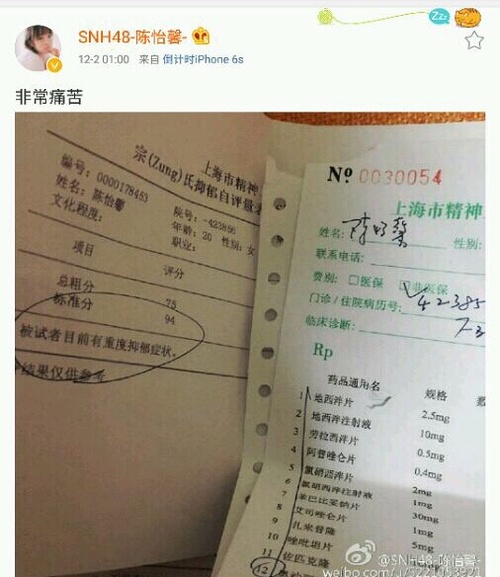 Zz
SNH48-陈怡馨-
12-2 01:00 来自 倒计时iPhone 6s
非常痛苦
上海市精神
宗(Zung)氏抑郁自评量
编号: 0000178453
姓名: 陈怡馨
院号: -423856
文化程度:
年龄: 20 性别: 女
职业:
项目 评分
总粗分 75
标准分 94
被试者目前有重度抑郁症状。
结果仅供参考
№ 0030054
上海市精神
姓名: 陈怡馨 性别:
联系电话:
费别: □医保 □非医保
门诊/住院病历号:
临床诊断:
Rp
药品通用名 规格
1 地西泮片 2.5mg
2 地西泮注射液 10mg
3 劳拉西泮片 0.5mg
4 阿普唑仑片 0.4mg
5 氯硝西泮片 2mg
6 氯硝西泮注射液 1mg
7 苯巴比妥钠片 30mg
8 艾司唑仑片 1mg
9 扎来普隆 5mg
10 唑吡坦片
11 佐匹克隆
12
@SNH48-陈怡馨-